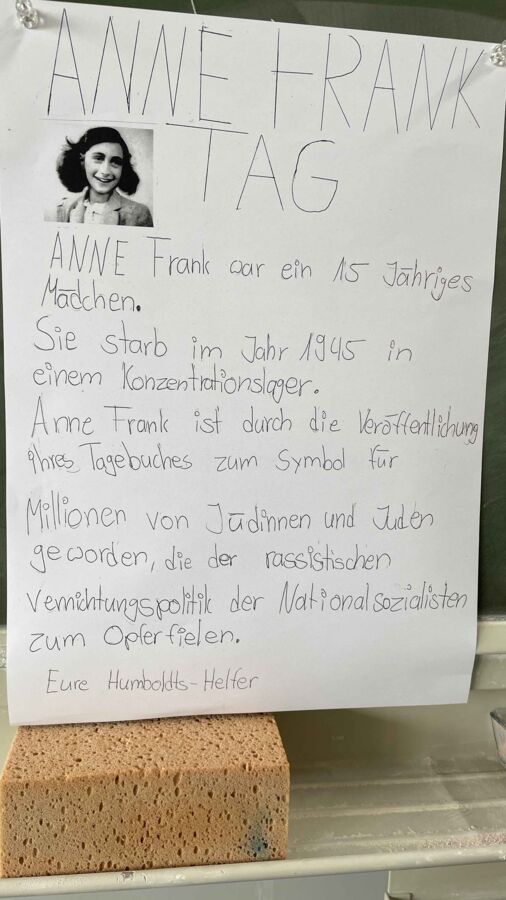 ANNE FRANK
TAG
ANNE Frank war ein 15 Jähriges
Mädchen.
Sie starb im Jahr 1945 in
einem Konzentrationslager.
Anne Frank ist durch die Veröffentlichung
ihres Tagebuches zum Symbol für
Millionen von Jüdinnen und Juden
geworden, die der rassistischen
Vernichtungspolitik der Nationalsozialisten
zum Opferfielen.
Eure Humboldts-Helfer